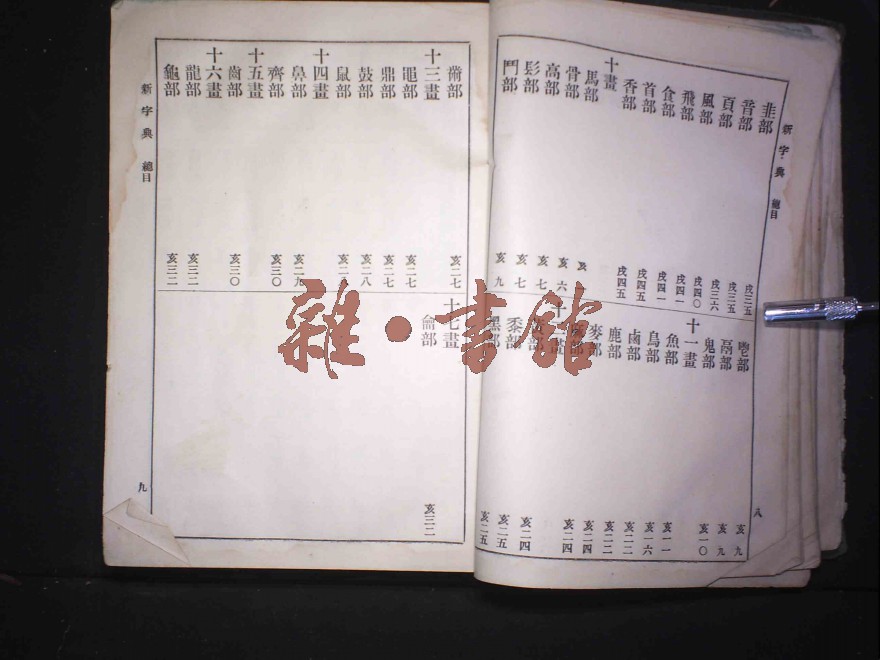 新字典 總目
韭部 戌三五
音部 戌三五
頁部 戌三六
風部 戌四〇
飛部 戌四一
食部 戌四一
首部 戌四五
香部 戌四五
十畫
馬部 亥
骨部 亥六
高部 亥七
髟部 亥七
鬥部 亥九
鬯部 亥九
鬲部 亥九
鬼部 亥一〇
十一畫
魚部 亥一一
鳥部 亥一六
鹵部 亥二二
鹿部 亥二二
麥部 亥二四
麻部 亥二四
畫
部 亥二四
黍部 亥二五
黑部 亥二五
八
黹部 亥二七
十三畫
黽部 亥二七
鼎部 亥二七
鼓部 亥二八
鼠部 亥二八
十四畫
鼻部 亥二九
齊部 亥三〇
十五畫
齒部 亥三〇
十六畫
龍部 亥三二
龜部 亥三二
十七畫
龠部 亥三二
新字典 總目
九
雜·書館